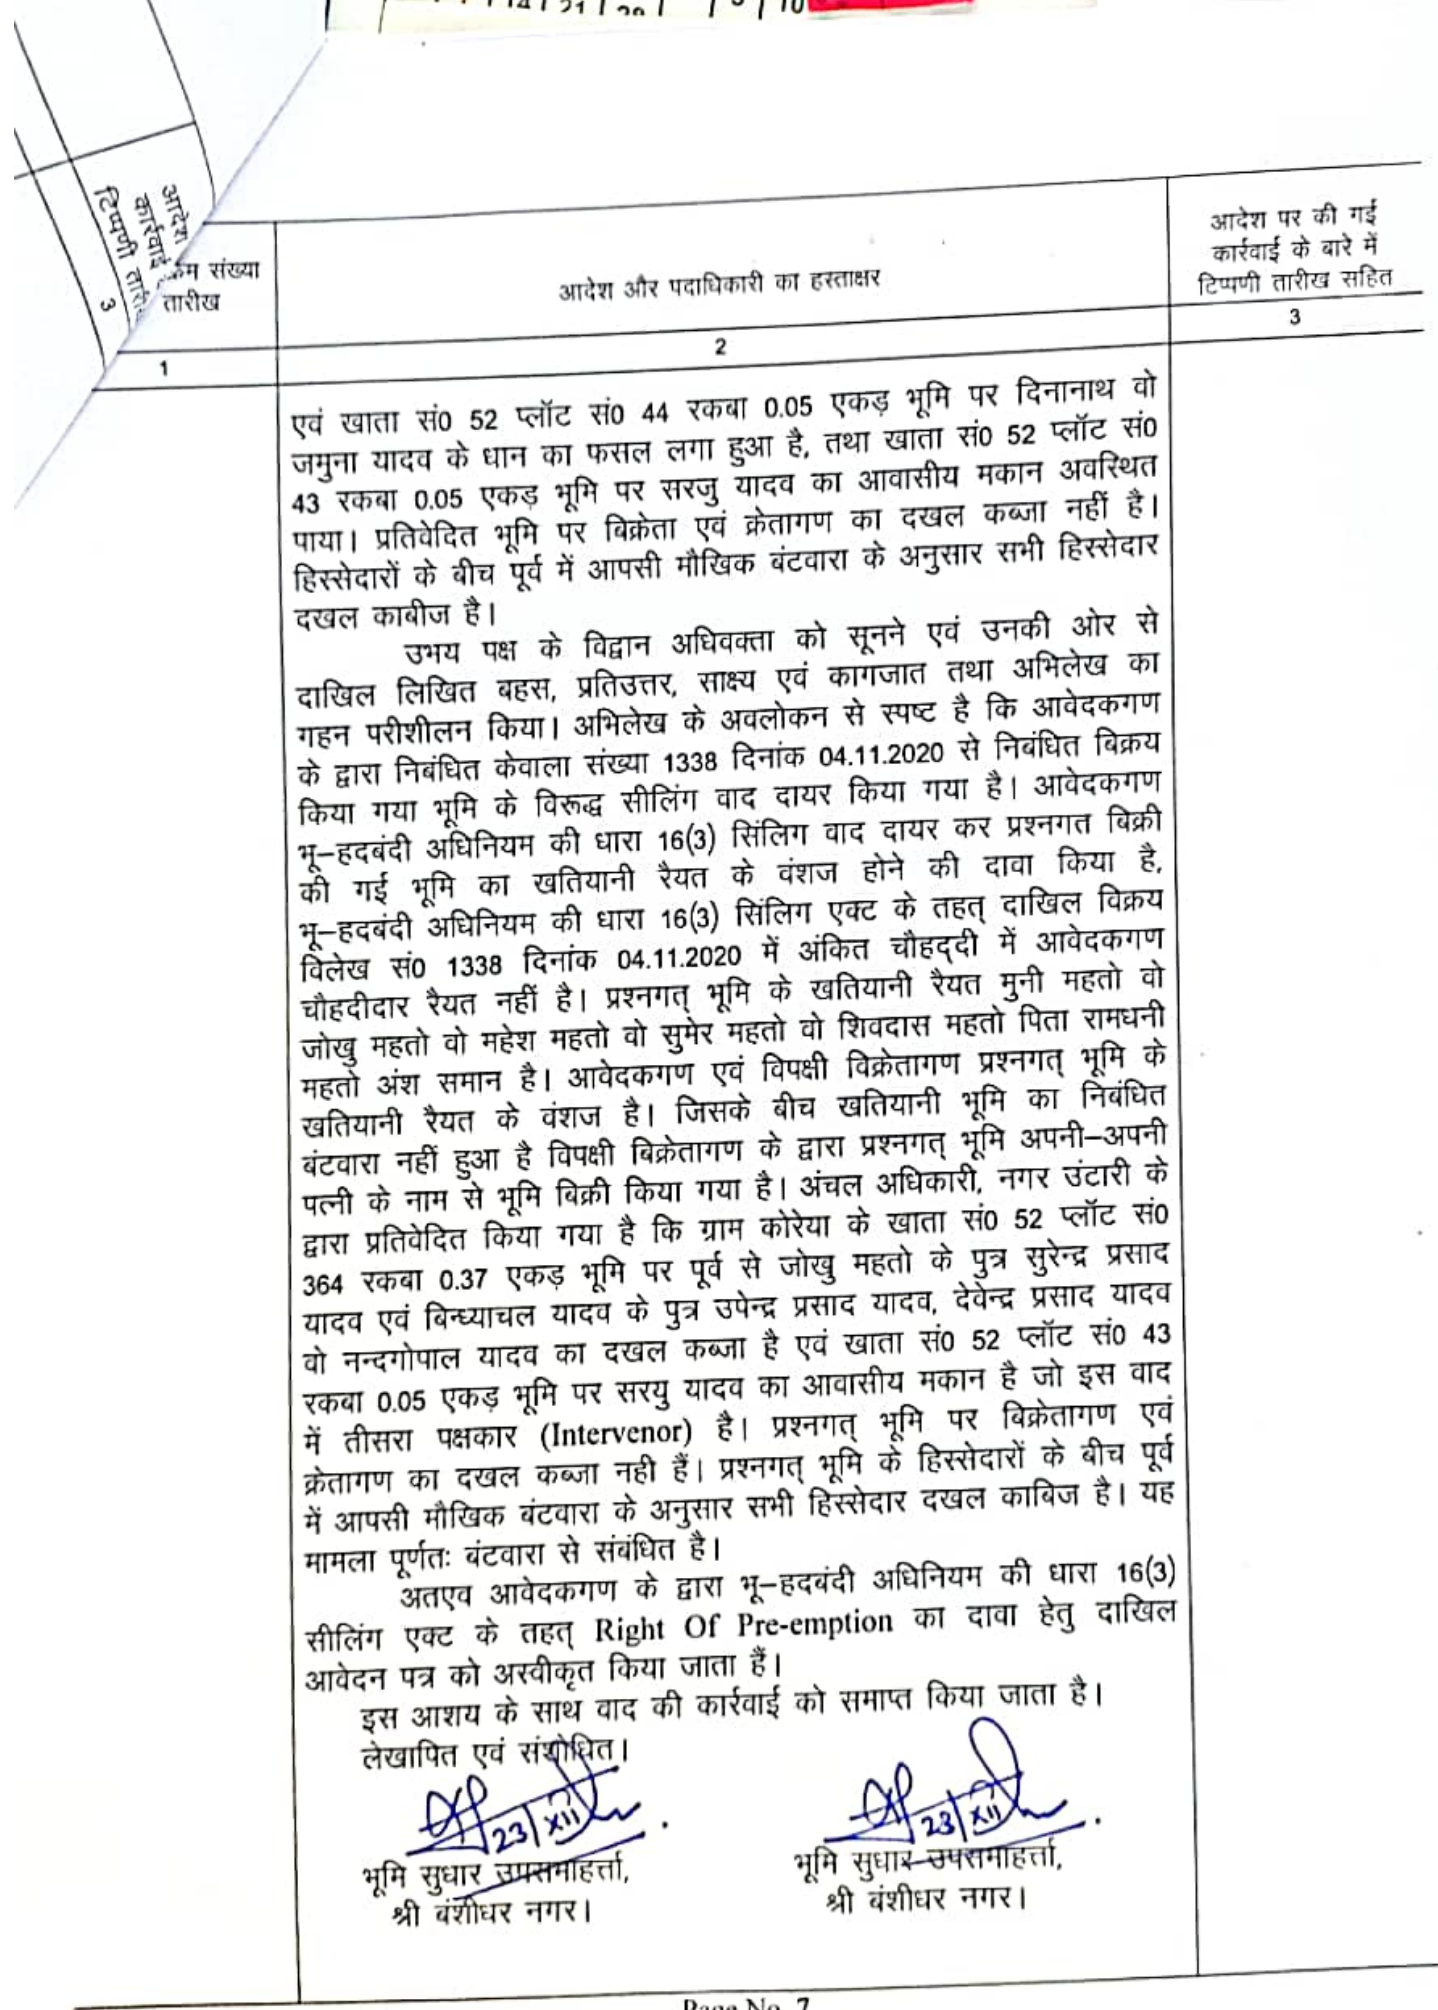 14 21 28
10
आदेश
कार्रवाई
टिप्पणी
3
क्रम संख्या
तारीख
आदेश और पदाधिकारी का हस्ताक्षर
आदेश पर की गई
कार्रवाई के बारे में
टिप्पणी तारीख सहित
1
2
3
एवं खाता सं0 52 प्लॉट सं0 44 रकबा 0.05 एकड़ भूमि पर दिनानाथ वो
जमुना यादव के धान का फसल लगा हुआ है, तथा खाता सं0 52 प्लॉट सं0
43 रकबा 0.05 एकड़ भूमि पर सरजु यादव का आवासीय मकान अवस्थित
पाया। प्रतिवेदित भूमि पर बिक्रेता एवं क्रेतागण का दखल कब्जा नहीं है।
हिस्सेदारों के बीच पूर्व में आपसी मौखिक बंटवारा के अनुसार सभी हिस्सेदार
दखल काबीज है।
उभय पक्ष के विद्वान अधिवक्ता को सूनने एवं उनकी ओर से
दाखिल लिखित बहस, प्रतिउत्तर, साक्ष्य एवं कागजात तथा अभिलेख का
गहन परीशीलन किया। अभिलेख के अवलोकन से स्पष्ट है कि आवेदकगण
के द्वारा निबंधित केवाला संख्या 1338 दिनांक 04.11.2020 से निबंधित बिक्रय
किया गया भूमि के विरूद्ध सीलिंग वाद दायर किया गया है। आवेदकगण
भू–हदबंदी अधिनियम की धारा 16(3) सिंलिग वाद दायर कर प्रश्नगत बिक्री
की गई भूमि का खतियानी रैयत के वंशज होने की दावा किया है,
भू–हदबंदी अधिनियम की धारा 16(3) सिंलिग एक्ट के तहत् दाखिल विक्रय
विलेख सं0 1338 दिनांक 04.11.2020 में अंकित चौहद्दी में आवेदकगण
चौहदीदार रैयत नहीं है। प्रश्नगत् भूमि के खतियानी रैयत मुनी महतो वो
जोखु महतो वो महेश महतो वो सुमेर महतो वो शिवदास महतो पिता रामधनी
महतो अंश समान है। आवेदकगण एवं विपक्षी विक्रेतागण प्रश्नगत् भूमि के
खतियानी रैयत के वंशज है। जिसके बीच खतियानी भूमि का निबंधित
बंटवारा नहीं हुआ है विपक्षी बिक्रेतागण के द्वारा प्रश्नगत् भूमि अपनी–अपनी
पत्नी के नाम से भूमि बिक्री किया गया है। अंचल अधिकारी, नगर उंटारी के
द्वारा प्रतिवेदित किया गया है कि ग्राम कोरेया के खाता सं0 52 प्लॉट सं0
364 रकबा 0.37 एकड़ भूमि पर पूर्व से जोखु महतो के पुत्र सुरेन्द्र प्रसाद
यादव एवं बिन्ध्याचल यादव के पुत्र उपेन्द्र प्रसाद यादव, देवेन्द्र प्रसाद यादव
वो नन्दगोपाल यादव का दखल कब्जा है एवं खाता सं0 52 प्लॉट सं0 43
रकबा 0.05 एकड़ भूमि पर सरयु यादव का आवासीय मकान है जो इस वाद
में तीसरा पक्षकार (Intervenor) है। प्रश्नगत् भूमि पर बिक्रेतागण एवं
क्रेतागण का दखल कब्जा नही हैं। प्रश्नगत् भूमि के हिस्सेदारों के बीच पूर्व
में आपसी मौखिक बंटवारा के अनुसार सभी हिस्सेदार दखल काबिज है। यह
मामला पूर्णतः बंटवारा से संबंधित है।
अतएव आवेदकगण के द्वारा भू–हदबंदी अधिनियम की धारा 16(3)
सीलिंग एक्ट के तहत् Right Of Pre-emption का दावा हेतु दाखिल
आवेदन पत्र को अस्वीकृत किया जाता हैं।
इस आशय के साथ वाद की कार्रवाई को समाप्त किया जाता है।
लेखापित एवं संशोधित।
23/XII
23/XII
भूमि सुधार उपसमाहर्त्ता,
श्री बंशीधर नगर।
भूमि सुधार उपसमाहर्त्ता,
श्री बंशीधर नगर।
Page No. 7